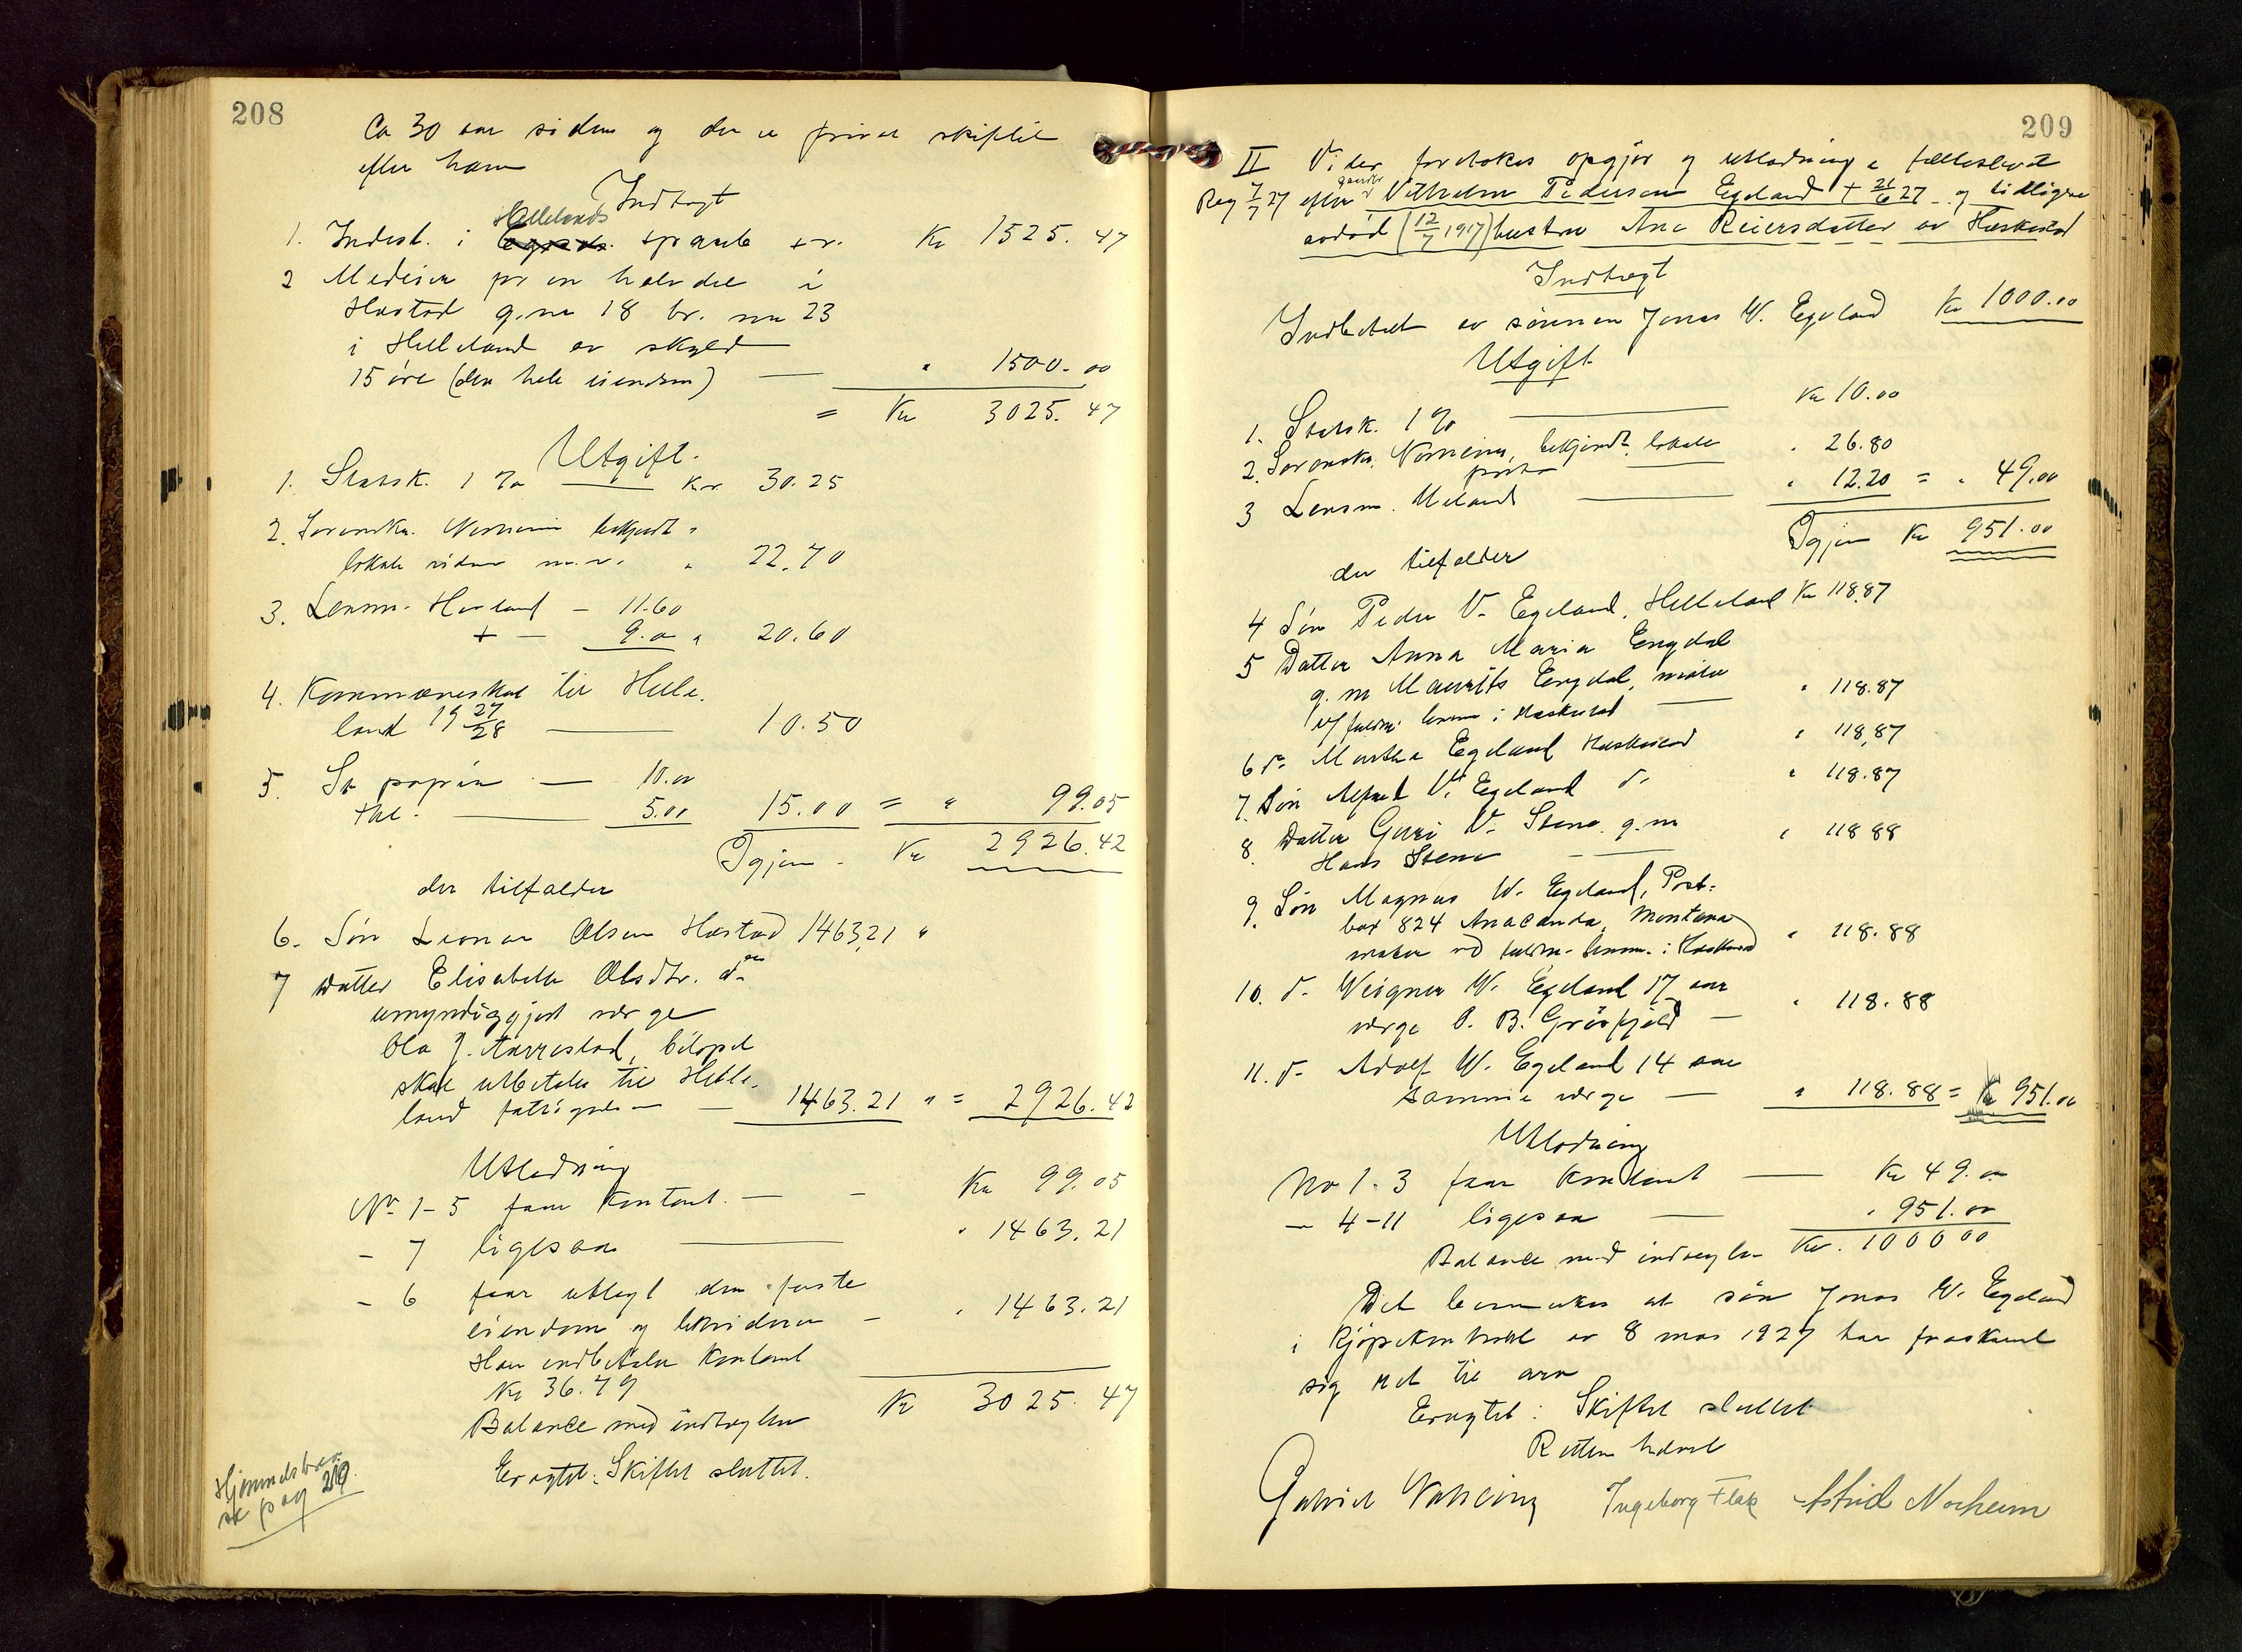 208
Ca 30 aar siden og der er privat skiftet
efter ham
Indtægt
1. Indest. i Hellelands Egers. spareb
Kr 1525.47
2 Medeier pr en halvdel i
Hæstad g.nr 18 br. nr 23
i Helleland av skyld
15 øre (den hele eiendom) — " 1500.00
= Kr 3025.47
Utgift.
1. Statsk. 1 % — Kr 30.25
2. Sorenskr. Norheim bekjendt "
lokale m.v. " 22.70
3. Lensm. — 11.60
+ — 9.00 " 20.60
4. Kommuneskat til Helle-
land 19 27/28 — 10.50
5. St papir — 10.00
— 5.00 15.00 = " 99.05
Igjen - Kr 2926.42
der tilfalder
6. Søn Leonar Olsen Hæstad 1463,21 "
7 Datter Elisabeth Olsdtr. do
umyndiggjort verge
Ola J. Aarrestad, beløpet
skal utbetales til Helle-
land — 1463.21 " = 2926.42
Utlodning
No 1-5 faar kontant. — - Kr 99.05
- 7 ligesaa — " 1463.21
- 6 faar utlagt den faste
eiendom og — " 1463.21
Han indbetaler kontant
Kr 36.79
Balance med indtægten Kr 3025.47
Eragtet: Skiftet sluttet.
Hjemmelsbrev
se pag 219.
209
II Videre foretokes opgjør og utlodning i fællesboet
Reg 7/7 27 efter gaardbr Vilhelm Pedersen Egeland + 21/6 27 og tidligere
avdød (12/7 1917) hustru Ane Reiersdatter av Heskestad
Indtægt
Indbetalt av sønnen Jonas W. Egeland Kr 1000.00
Utgift
1. Statsk. 1 % — Kr 10.00
2. Sorenskr. Norheim, bekjendt, lokale
porto " 26.80
3 Lensm. — " 12.20 = " 49.00
Igjen Kr 951.00
der tilfalder
4 Søn Peder V. Egeland, Helleland Kr 118,87
5 Datter Anna Maria Engdal
g.m Maurits Engdal, møter
v/ fuldm. i Heskestad — " 118.87
6 do Martha Egeland Heskestad " 118,87
7. Søn Alfred V. Egeland do " 118.87
8. Datter Guri V. Stene g.m
Hans Stene — " 118 88
9. Søn Magnus W. Egeland, Post-
box 824 Anaconda, Montana
møter ved fuldm. i Heskestad " 118.88
10. do W. Egeland 17 aar
verge O. B. Grøsfjeld — " 118.88
11. do Adolf W. Egeland 14 aar
samme verge — " 118.88 = Kr 951.00
Utlodning
No 1-3 faar kontant — Kr 49.00
— 4-11 ligesaa — " 951.00
Balance med indtægten Kr. 1000 00
Det bemerkes at søn Jonas W. Egeland
i kjøpekontrakt av 8 mai 1927 har fraskrevet
sig ret til arv
Eragtet: Skiftet sluttet
Retten hævet
Gabriel Ingeborg Flak Astrid Norheim